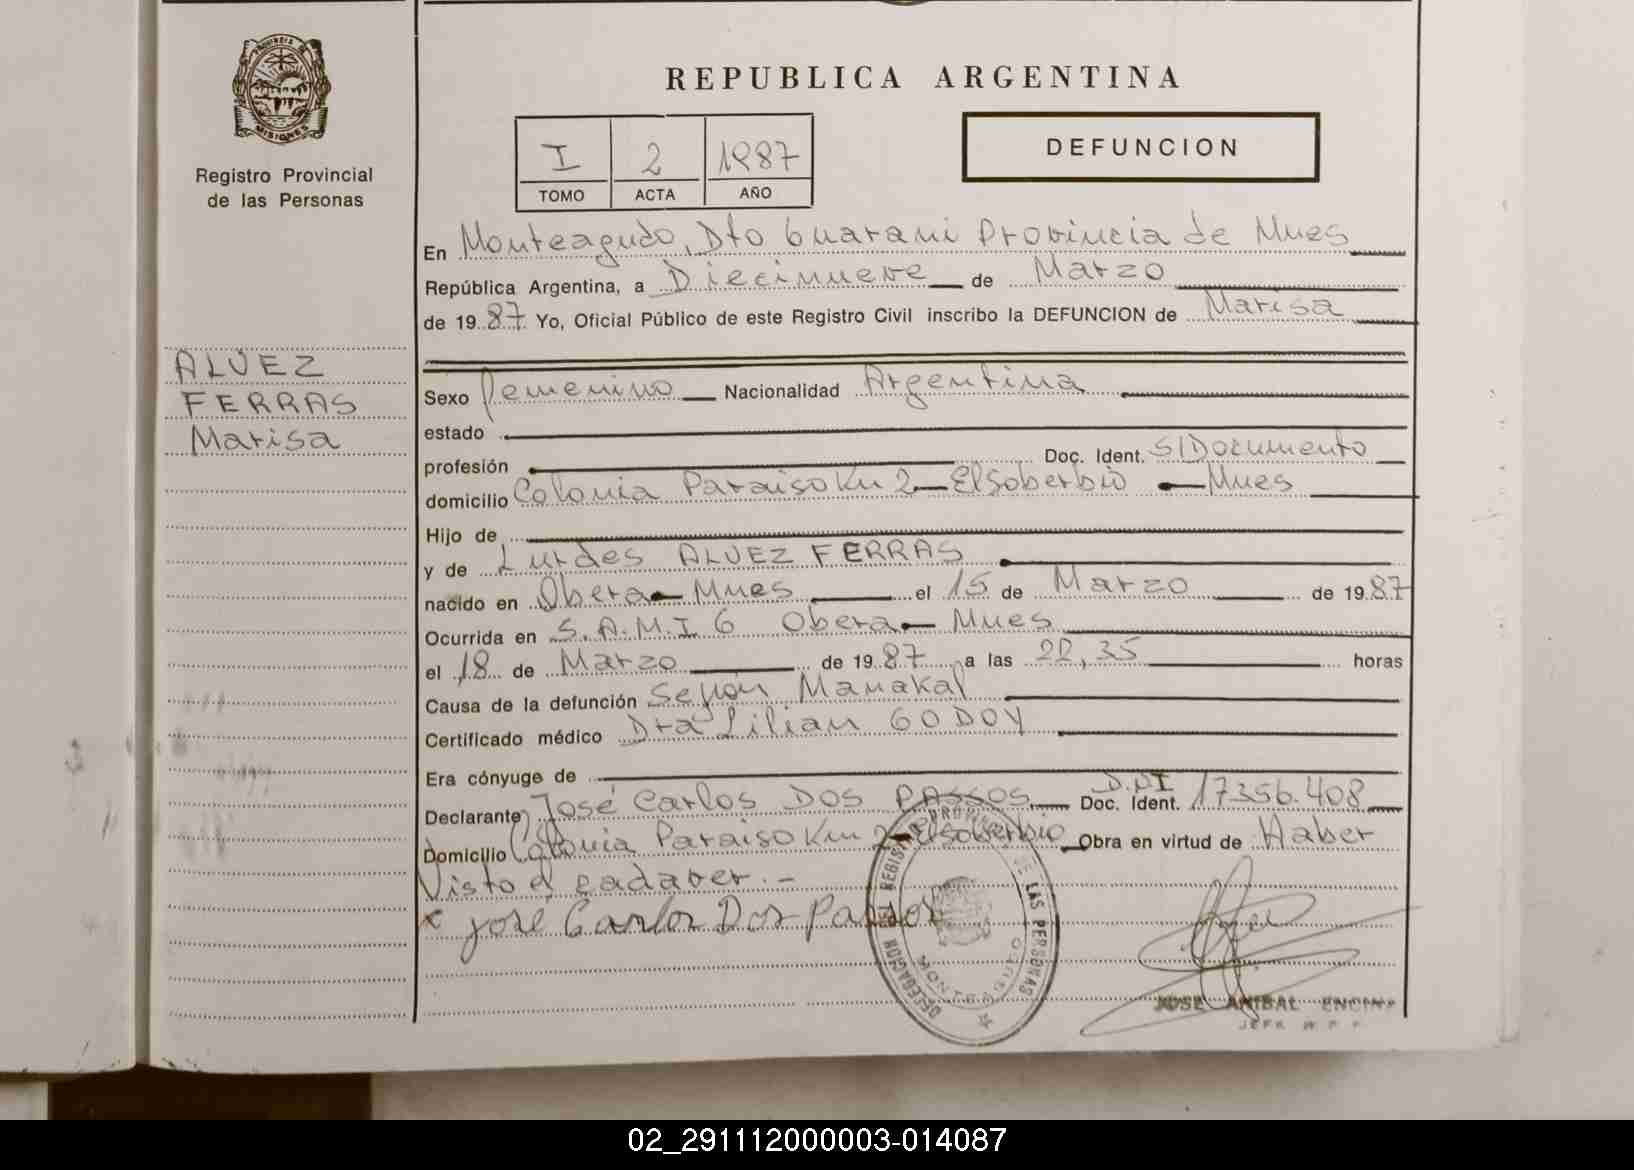 REPUBLICA ARGENTINA
PROVINCIA DE
MISIONES
Registro Provincial
de las Personas
I 2 1987
TOMO ACTA AÑO
DEFUNCION
En Monteagudo, Dto Guarani Provincia de Mnes
República Argentina, a Diecinueve de Marzo
de 1987 Yo, Oficial Público de este Registro Civil inscribo la DEFUNCION de Marisa
ALVEZ
FERRAS
Marisa
Sexo Femenino Nacionalidad Argentina
estado
profesión Doc. Ident. S/Documento
domicilio Colonia Paraiso Km 2 - El Soberbio - Mnes
Hijo de
y de Lurdes ALVEZ FERRAS
nacido en Obera - Mnes el 15 de Marzo de 1987
Ocurrida en S.A.M.I 6 Obera - Mnes
el 18 de Marzo de 1987 a las 22,35 horas
Causa de la defunción
Certificado médico Dra Lilian GODOY
Era cónyuge de
Declarante José Carlos DOS PASSOS D.N.I Doc. Ident. 17356.408
Domicilio Colonia Paraiso Km 2 - El Soberbio Obra en virtud de Haber
Visto el cadaver.-
x José Carlos Dos Passos
DELEGACION DE REGISTRO PROVINCIAL DE LAS PERSONAS
MONTEAGUDO
JOSE ANIBAL
JEFE
02_291112000003-014087